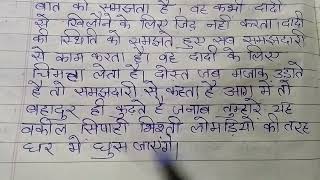 बात को समझता है, वह कभी दादी
से खिलौने के लिए जिद नहीं करता। दादी
की स्थिति को समझते हुए सब समझदारी
से काम करता है। वह दादी के लिए
चिमटा लेता है। दोस्त जब मजाक उड़ाते
है तो समझदारी से कहता है आग में तो
बहादुर ही कूदते है जनाब तुम्हारे यह
वकील सिपाही भिश्ती लोमड़ियों की तरह
घर में घुस जाएंगे।